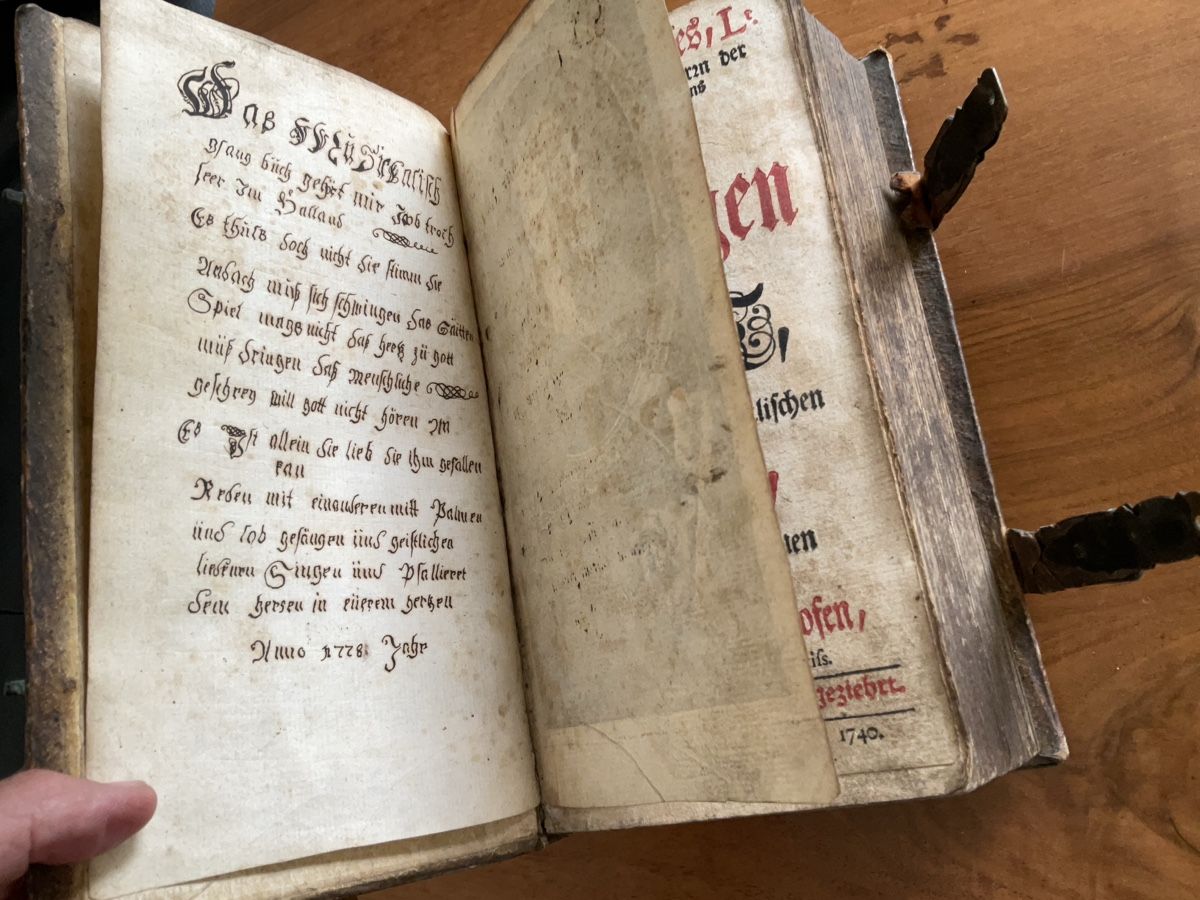 Das Muſicaliſch
gſang büch gehört mir Job troch
ſeer Im
Es thüts doch nicht die ſtimm die
Andach müß ſich ſchwingen das Säitten
Spiel mags nicht daß hertz zü gott
müß dringen daß Menſchliche
geſchrey will gott nicht hören An
Es Iſt allein die lieb die ihm gefallen
kan
Reden mit einanderen mitt Palmen
ünd lob geſängen ünd geiſtlichen
liederen Singen ünd Pſallieret
dem herren in eüerem hertzen
Anno 1778 Jahr
es, Lt.
rrn der
ns
gen
T,
liſchen
nen
ofen,
iſs.
geziehrt.
1740.